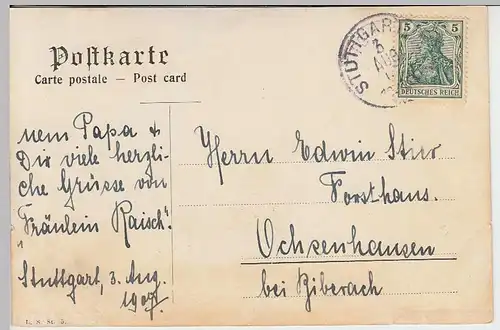 Postkarte
Carte postale — Post card
STUTTGART
3
AUG
5 5
DEUTSCHES REICH
nem Papa &
Dir viele herzli-
che Grüsse von
Fräulein Raisch".
Stuttgart, 3. Aug.
1907.
Herrn Edwin Stier
Forsthaus.
Ochsenhausen
bei Biberach
L. S. St. 5.